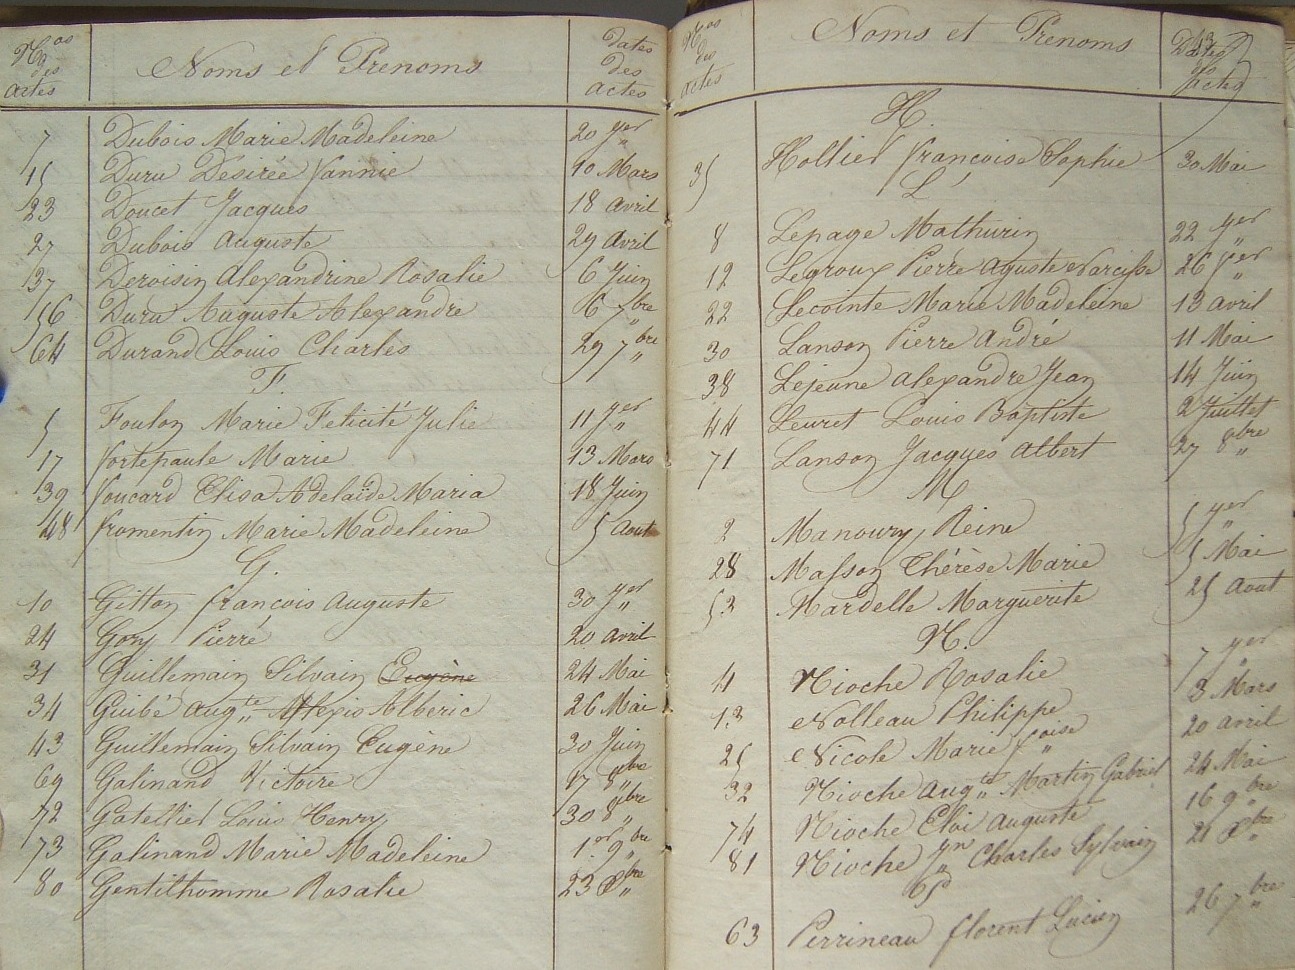 Nos des actes Noms et Prenoms dates des actes
7 Dubois Marie Madeleine 20 Jer
15 Duru Desirée fannie 10 Mars
23 Doucet Jacques 18 avril
27 Dubois auguste 29 avril
37 Deroisin alexandrine Rosalie 6 Juin
56 Duru Auguste Alexandre 6 7bre
64 Durand Louis Charles 29 7bre
F.
5 Foulon Marie Felicité Julie 11 Jer
17 fortepaule Marie 13 Mars
39 foucard Elisa Adelaïde Maria 18 Juin
48 fromentin Marie Madeleine 5 Aout
G.
10 Gitton francois auguste 30 Jer
24 Gory Pierre 20 avril
31 Guillemain Silvain Eugène 24 Mai
34 Guibé augte Alexis Alberic 26 Mai
43 Guillemain Silvain Eugène 30 Juin
69 Galinand Victoire 17 8bre
72 Gatellier Louis Henry 30 8bre
73 Galinand Marie Madeleine 1er 9bre
80 Gentilhomme Rosalie 23 Xbre
Nos des actes Noms et Prenoms Dates des actes
H.
35 Hollier francoise Sophie 30 Mai
L
8 Lepage Mathurin 22 Jer
12 Legroux Pierre Aguste Narcisse 26 fer
22 Lecointe Marie Madeleine 13 avril
30 Lanson Pierre andré 11 Mai
38 Lejeune alexandre Jean 14 Juin
44 Leuret Louis Baptiste 2 Juillet
71 Lanson Jacques albert 27 8bre
M
2 Manoury Reine 5 Jer
28 Masson Thérèse Marie 5 Mai
53 Mardelle Marguerite 25 Aout
N.
4 Nioche Rosalie 7 Jer
13 Nolleau Philippe 3 Mars
25 Nicole Marie fcoise 20 avril
32 Nioche augte Martin Gabriel 24 Mai
74 Nioche Eloi auguste 16 9bre
81 Nioche Jn Charles Sylvain 21 Xbre
P
63 Perrineau florent Lucien 26 7bre